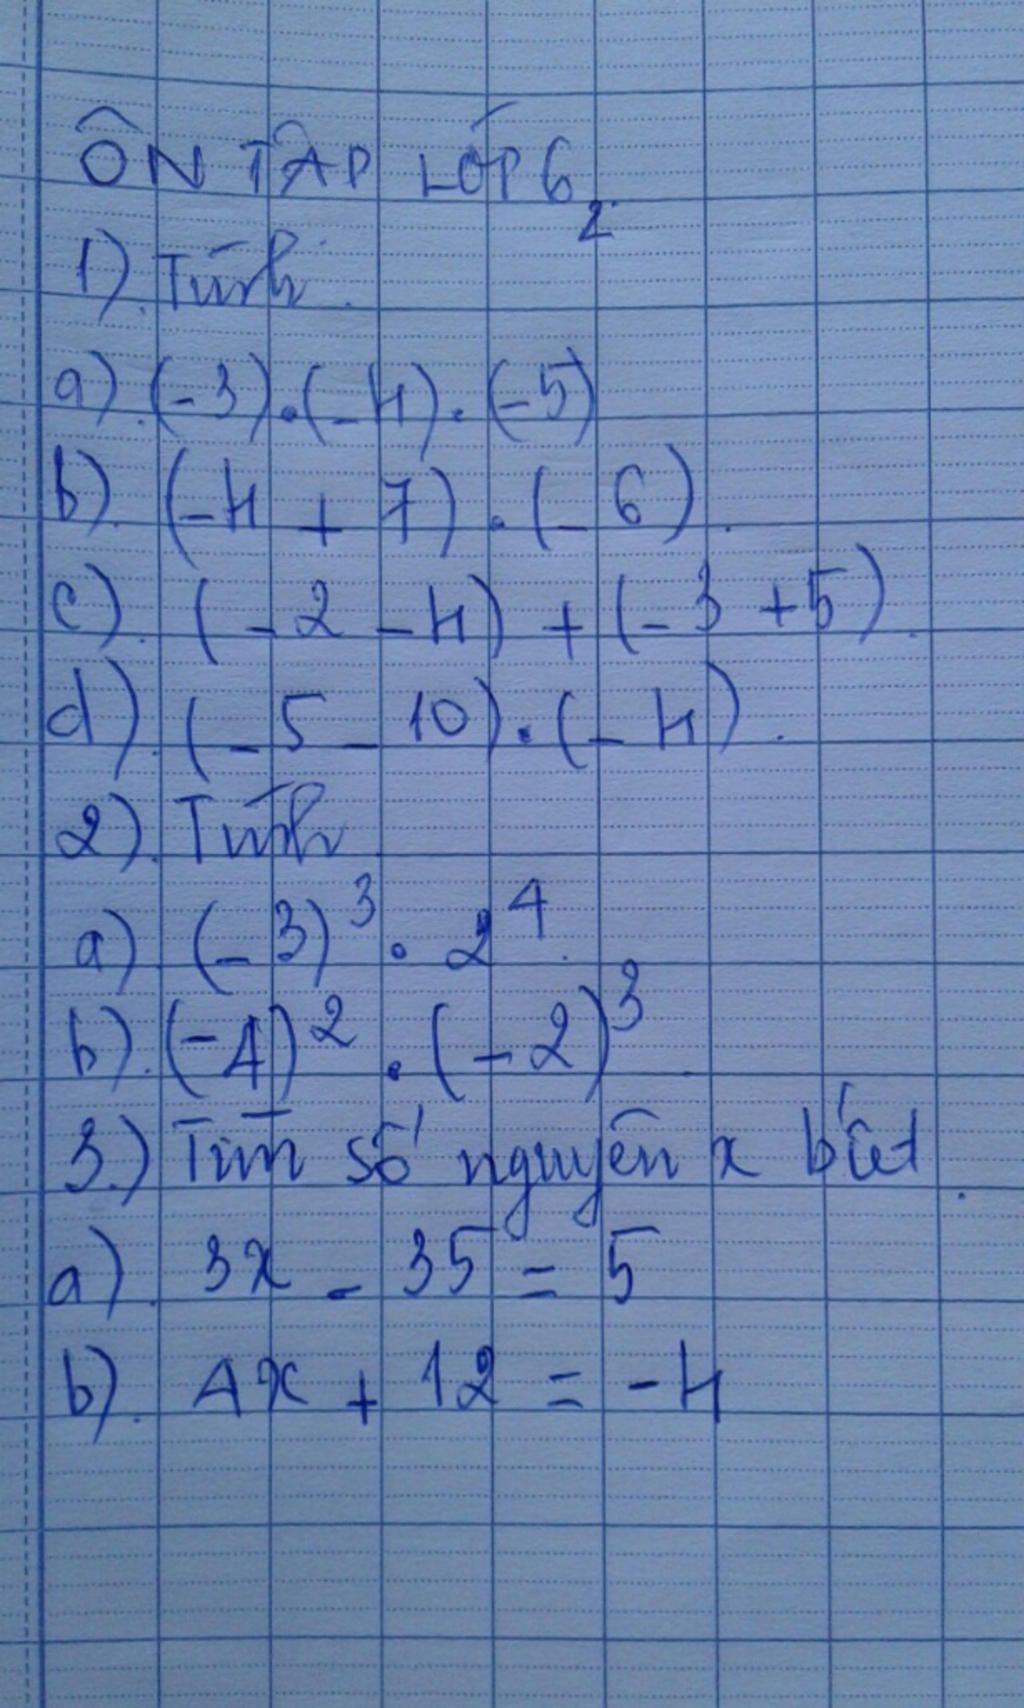 ÔN TẬP LỚP 6₂
1) Tính.
a) (-3).(-4).(-5)
b) (-4 + 7).(-6).
c) (-2 -4) + (-3 +5).
d) (-5 - 10).(-4).
2) Tính
a) (-3)³ . 2⁴.
b) (-4)² . (-2)³.
3.) Tìm số nguyên x biết.
a) 3x - 35 = 5
b) 4x + 12 = -4